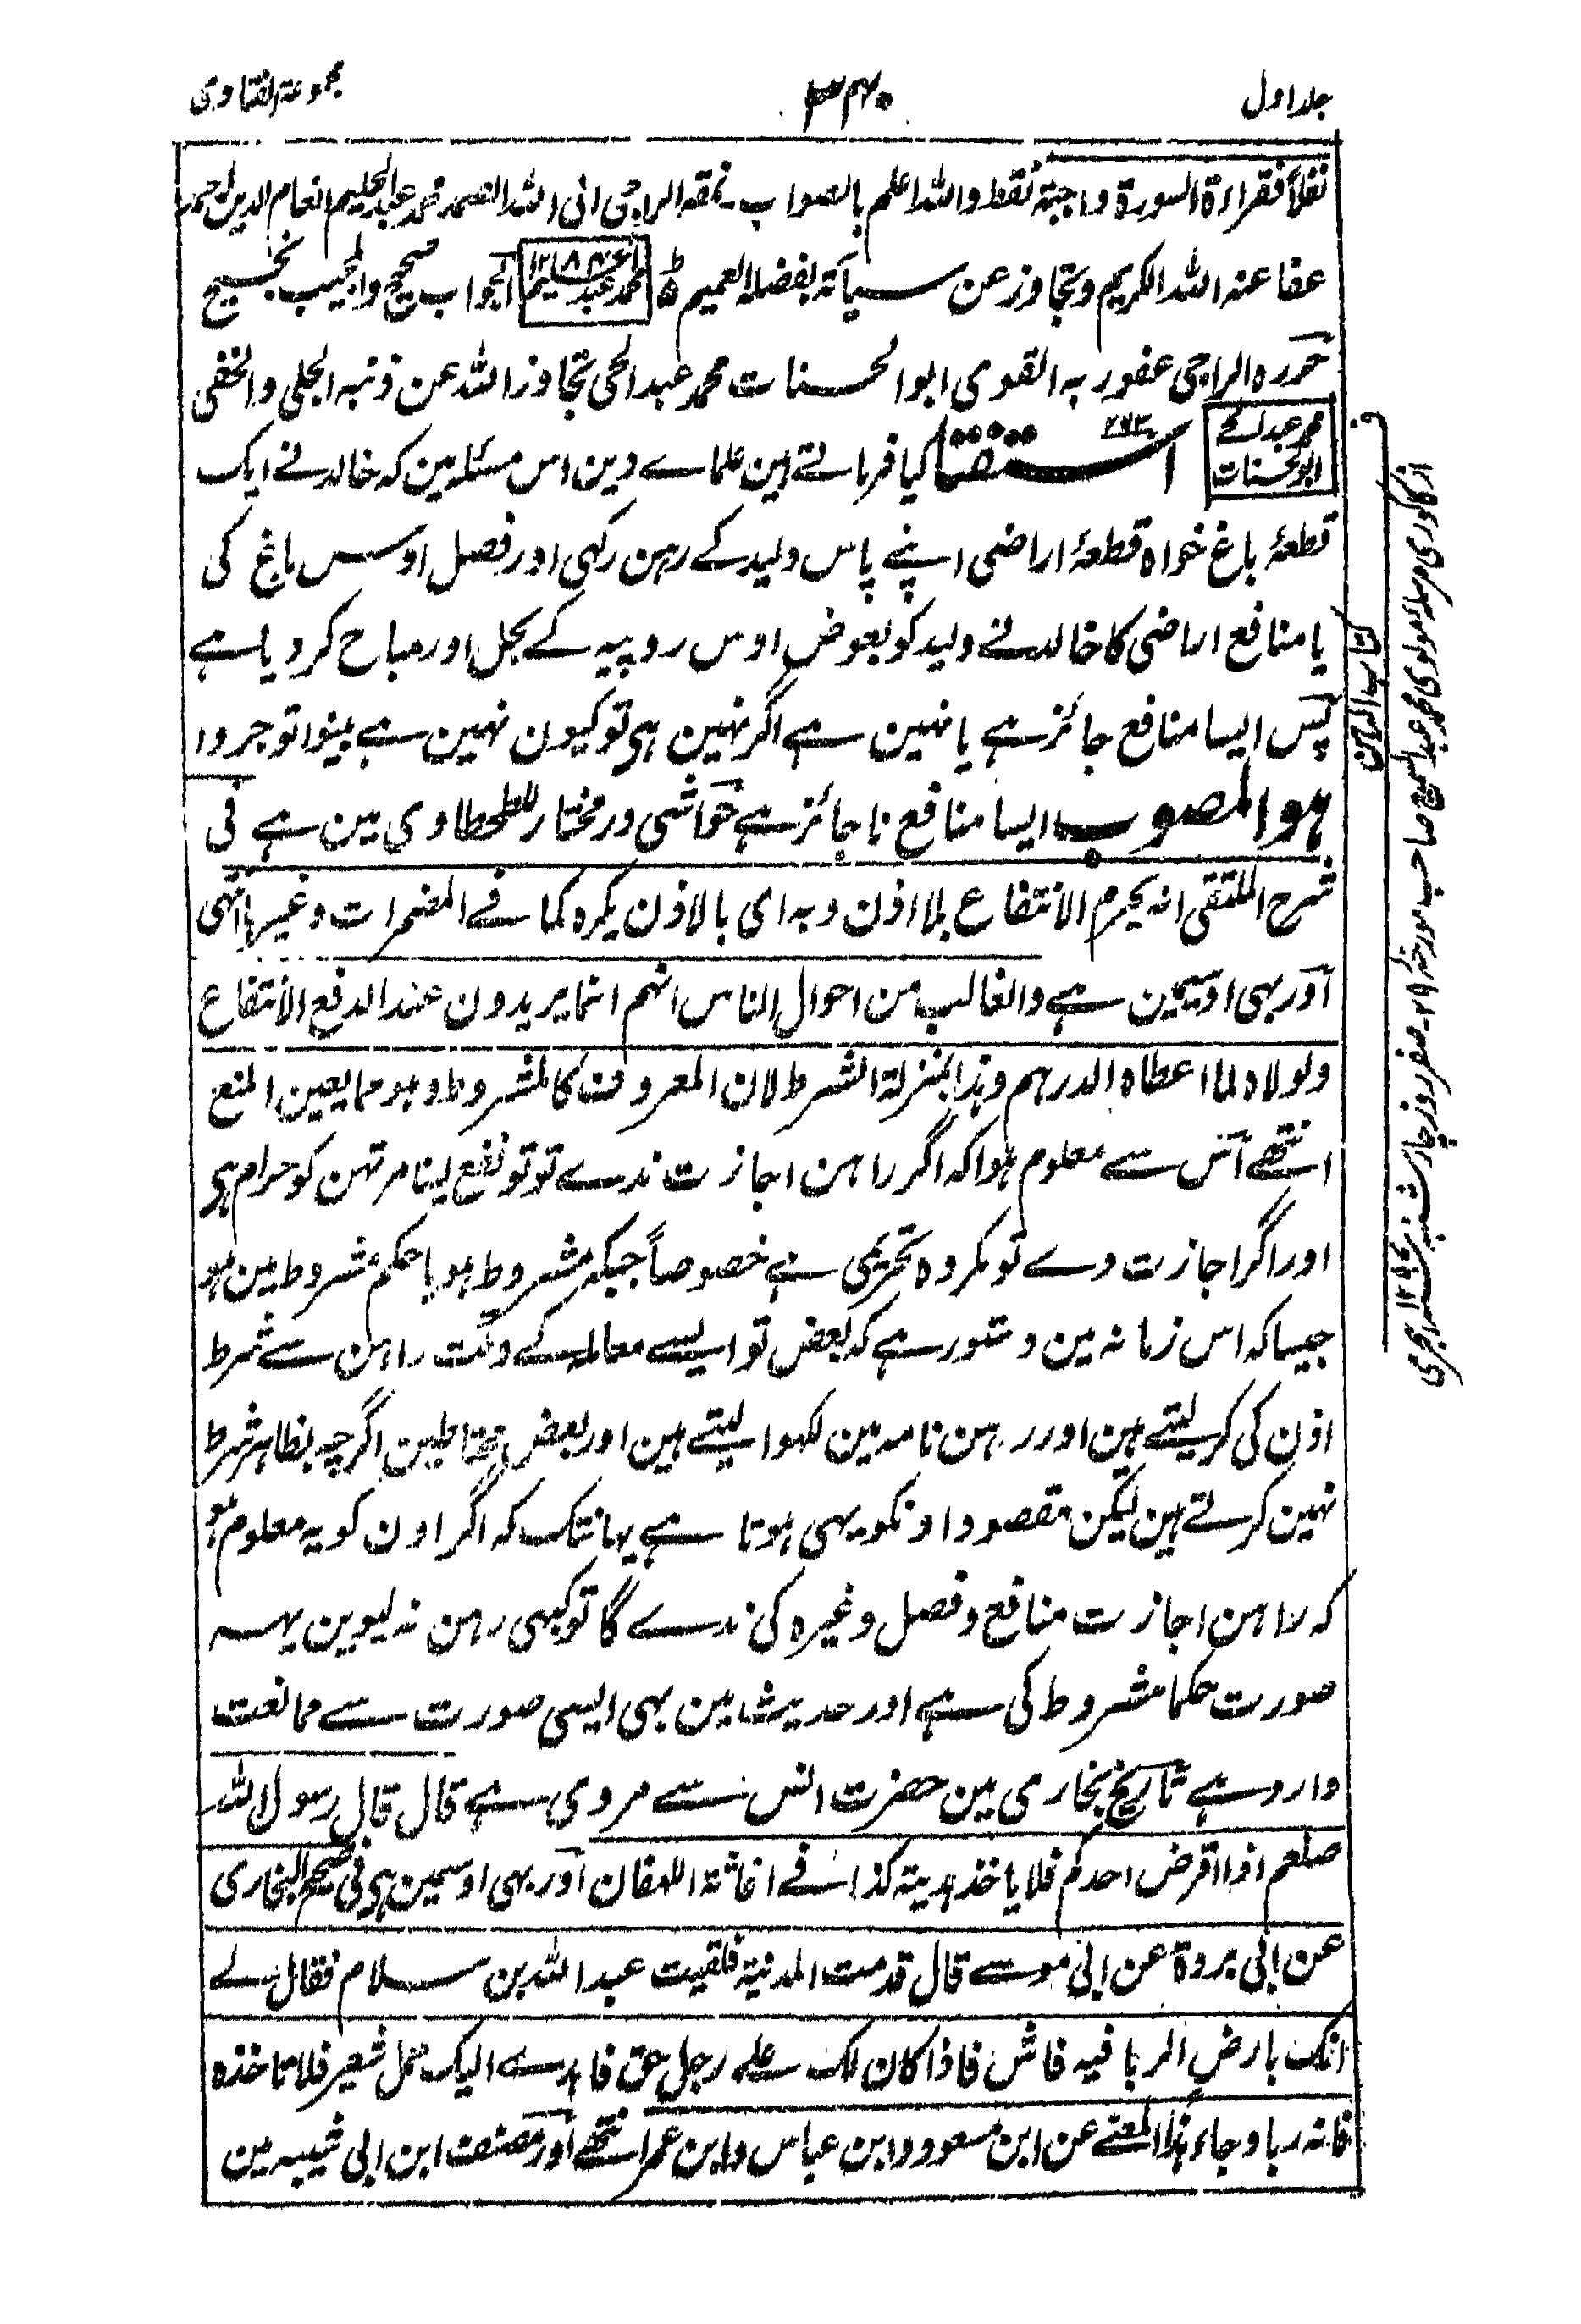 جلد اول
۳۴۰
مجموعۃ الفتاوی
نفلاً فقراءۃ السورۃ واجبۃ فقط واللہ اعلم بالصواب۔ نمقہ الراجی الی اللہ الصمد محمد عبدالحلیم انعام الدین احمد
عفا عنہ اللہ الکریم وتجاوز عن سیآتہ بفضلہ العمیم الجواب صحیح والمجیب نجیح
حررہ الراجی عفو ربہ القوی ابو الحسنات محمد عبد الحی تجاوز اللہ عن ذنبہ الجلی والخفی
محمد عبد الحے
ابو الحسنات
استفتا کیا فرماتے ہین علماے دین اس مسئلہ مین کہ خالد نے ایک
قطعۂ باغ خواہ قطعۂ اراضی اپنے پاس ولید کے رہن رکہی اور فصل اوس باغ کی
یا منافع اراضی کا خالد نے ولید کو بعوض اوس روپیہ کے بحل اور مباح کر دیا ہے
پس ایسا منافع جائز ہے یا نہین ہے اگر نہین ہی تو کیون نہین ہے بینوا توجروا
ہو المصوب ایسا منافع ناجائز ہے حواشی درمختار للطحطاوی مین ہے فی
شرح الملتقی انہ یحرم الانتفاع بلا اذن وبہ ای بالاذن یکرہ کما فے المضمرات وغیرہا انتہی
اور بہی اوسیمین ہے والغالب من احوال الناس انہم انما یریدون عند الدفع الانتفاع
ولولاہ لما اعطاہ الدرہم وہذا بمنزلۃ الشرط لان المعروف کالمشروط وہو مما یعین المنع
انتھے اس سے معلوم ہوا کہ اگر راہن اجازت ندے تو تو نفع لینا مرتہن کو حرام ہی
اور اگر اجازت دے تو مکروہ تحریمی ہے خصوصاً جبکہ مشروط ہو یا حکم مشروط مین ہو
جیسا کہ اس زمانہ مین دستور ہے کہ بعض تو ایسے معاملہ کے وقت راہن سے شرط
اذن کی کر لیتے ہین اور رہن نامہ مین لکہوا لیتے ہین اور بعض محتاطین اگرچہ بظاہر شرط
نہین کرتے ہین لیکن مقصود اونکو یہی ہوتا ہے یہانتک کہ اگر اون کو یہ معلوم ہو
کہ راہن اجازت منافع و فصل وغیرہ کی ندے گا تو کبہی رہن نہ لیوین یہہ
صورت حکما مشروط کی ہے اور حدیث مین بہی ایسی صورت سے ممانعت
وارد ہے تاریخ بخاری مین حضرت انس سے مروی ہے قال قال رسول اللہ
صلعم اذا اقرض احدکم فلا یاخذ ہدیۃ کذا فے اغاثۃ اللہفان اور بہی اوسمین ہی فی صحیح البخاری
عن ابی بردۃ عن ابی موسے قال قدمت المدینۃ فلقیت عبد اللہ بن سلام فقال لے
انک بارض الربا فیہ فاش فاذا کان لک علے رجل حق فاہدے الیک حمل شعیر فلا تاخذہ
فانہ ربا وجاء ہذا المعنے عن ابن مسعود وابن عباس وابن عمر انتھے اور مصنف ابن ابی شیبہ مین
کتاب الرہن
از کاکوری مرسلہ مولوی محمد عبد السمیع صاحب مورخہ ۲۹ صفر روز چارشنبہ ہجری